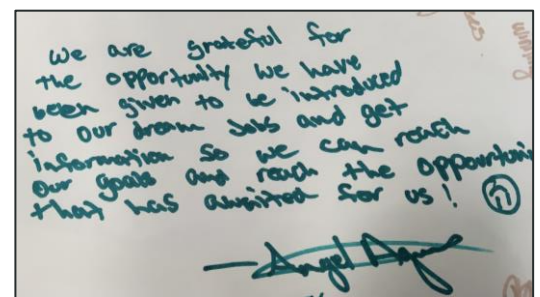 we are grateful for
the opportunity we have
been given to be introduced
to our dream jobs and get
information so we can reach
our goals and reach the opportuni
that has awaited for us!
— Angel